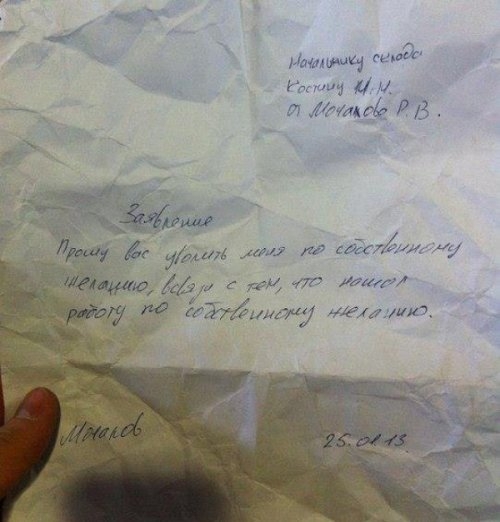 Начальнику склада
Костину М.Н.
от Мочалова Р.В.
Заявление
Прошу вас уволить меня по собственному
желанию, всвязи с тем, что нашол
работу по собственному желанию.
Мочалов
25.01.13